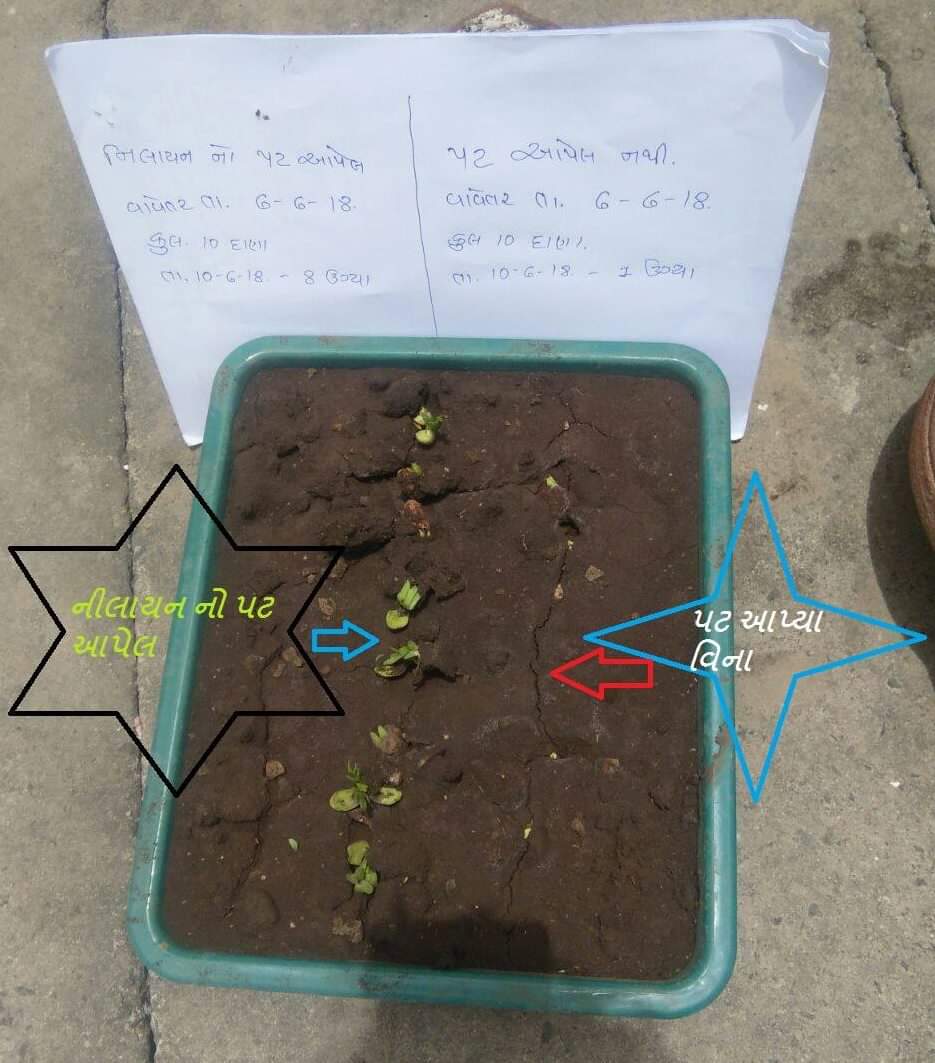 નિલાયન નો પટ આપેલ
વાવેતર તા. 6-6-18.
કુલ. 10 દાણા
તા. 10-6-18. - 8 ઉગ્યા
પટ આપેલ નથી.
વાવેતર તા. 6-6-18.
કુલ 10 દાણા.
તા. 10-6-18 - 1 ઉગ્યા
નીલાયન નો પટ
આપેલ
પટ આપ્યા
વિના